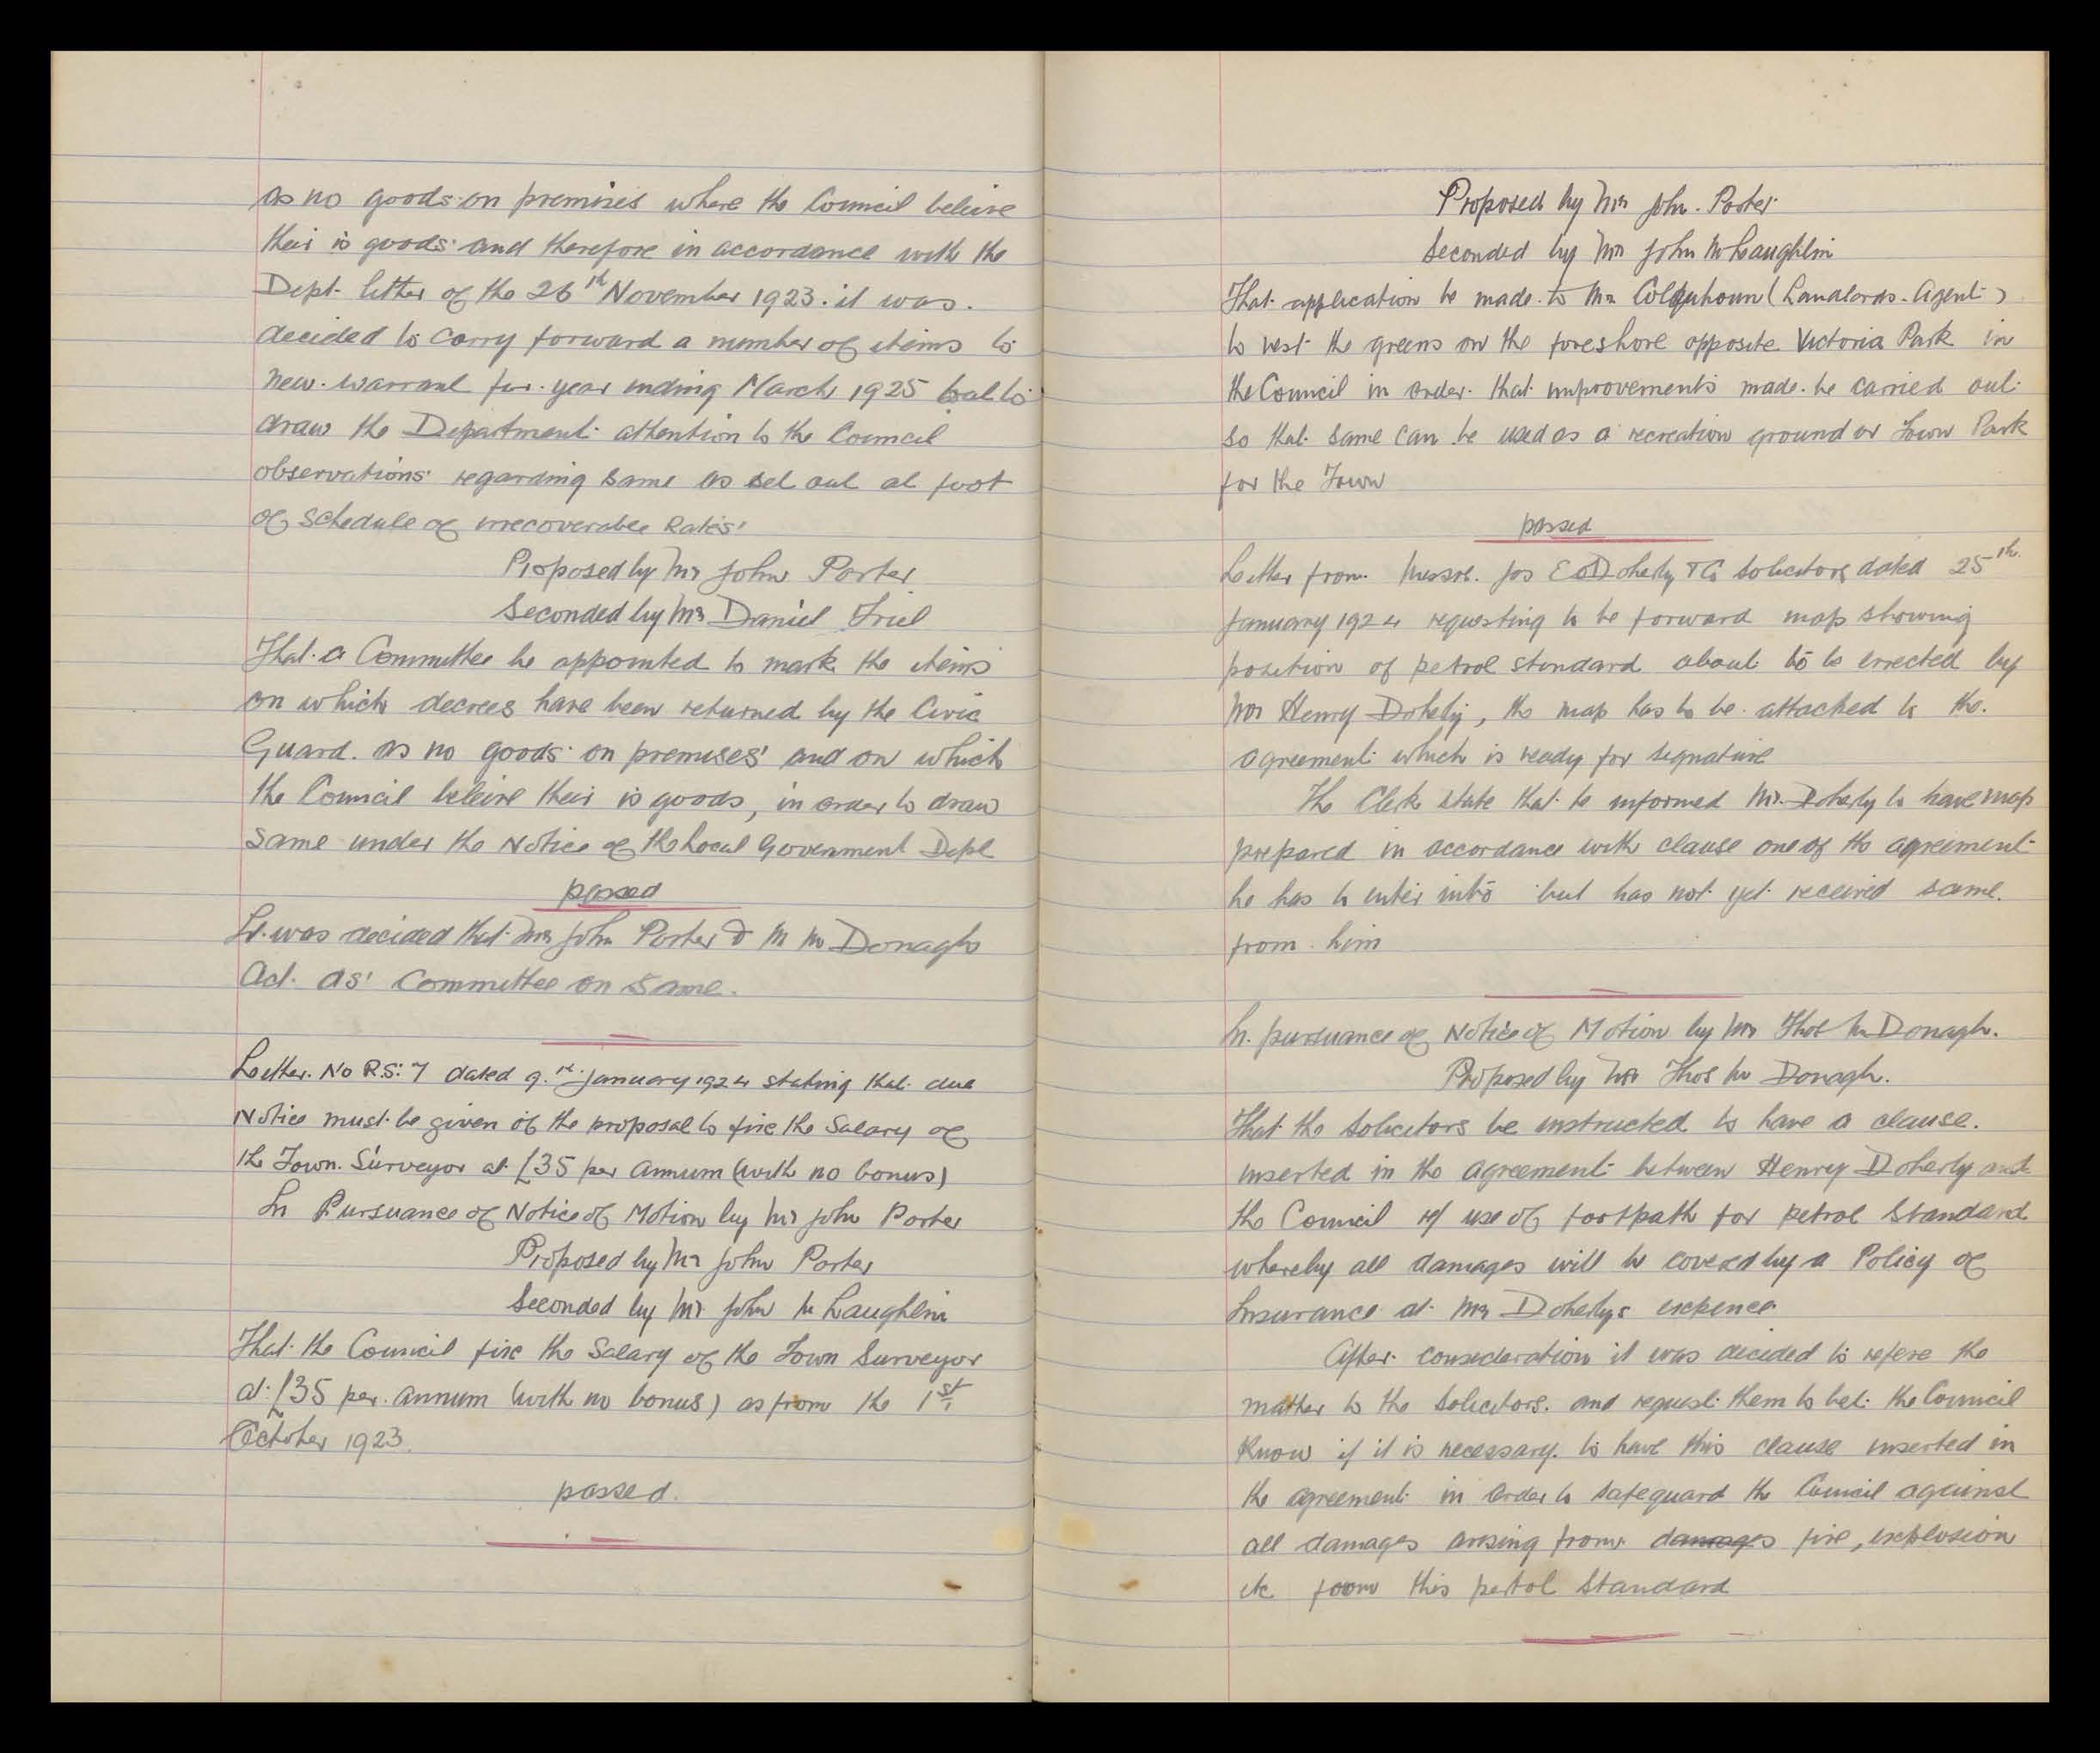 as no goods on premises where the Council beleive
their is goods and therefore in accordance with the
Dept. letter of the 26th November 1923. it was.
decided to carry forward a number of items to
new. warrant for. year ending March 1925 but to
draw the Department attention to the Council
observations regarding same as set out at foot
of Schedule of irrecoverable Rates'
Proposed by Mr John Porter
Seconded by Mr Daniel Friel
That a Committee be appointed to mark the items
on which decrees have been returned by the Civic
Guard. as no goods on premises' and on which
the Council beleive their is goods, in order to draw
same under the Notice of the Local Government Dept
passed
It was decided that Mr John Porter & M McDonagh
Act. as' Committee on same.
Letter. No R.S: 7 dated 9.th January 1924 stating that due
Notice must be given of the proposal to fixe the Salary of
the Town. Surveyor at £35 per annum (with no bonus)
In Pursuance of Notice of Motion by Mr John Porter
Proposed by Mr John Porter
Seconded by Mr John McLaughlin
That the Council fixe the Salary of the Town Surveyor
at £35 per. annum (with no bonus) as from the 1st
October 1923.
passed.
Proposed by Mr John. Porter
Seconded by Mr John McLaughlin
That application be made to Mr Colquhoun (Landlords-Agent)
to vest the greens on the foreshore opposite Victoria Park in
the Council in order. that improvements made. be carried out
so that same can be used as a recreation ground or Town Park
for the Town
passed
Letter from Messrs. Jos E O'Doherty & Co Solicitors dated 25th
January 1924 requesting to be forward map showing
position of petrol standard about to be errected by
Mr Henry Doherty, the map has to be attached to the.
agreement which is ready for signature
The Clerk state that he informed Mr. Doherty to have map
prepared in accordance with clause one of the agreement
he has to enter into but has not yet received same.
from him
In. pursuance of Notice of Motion by Mr Thos McDonagh.
Proposed by Mr Thos McDonagh.
That the Solicitors be instructed to have a clause.
inserted in the agreement between Henry Doherty and
the Council re/ use of footpath for petrol Standard
whereby all damages will be coverd by a Policy of
Insurance at Mr Dohertys expence
After consideration it was decided to refere the
matter to the Solicitors. and request them to let the Council
know if it is necessary. to have this clause inserted in
the agreement in order to safeguard the Council against
all damages arising from damages fire, explosion
etc from this petrol Standard